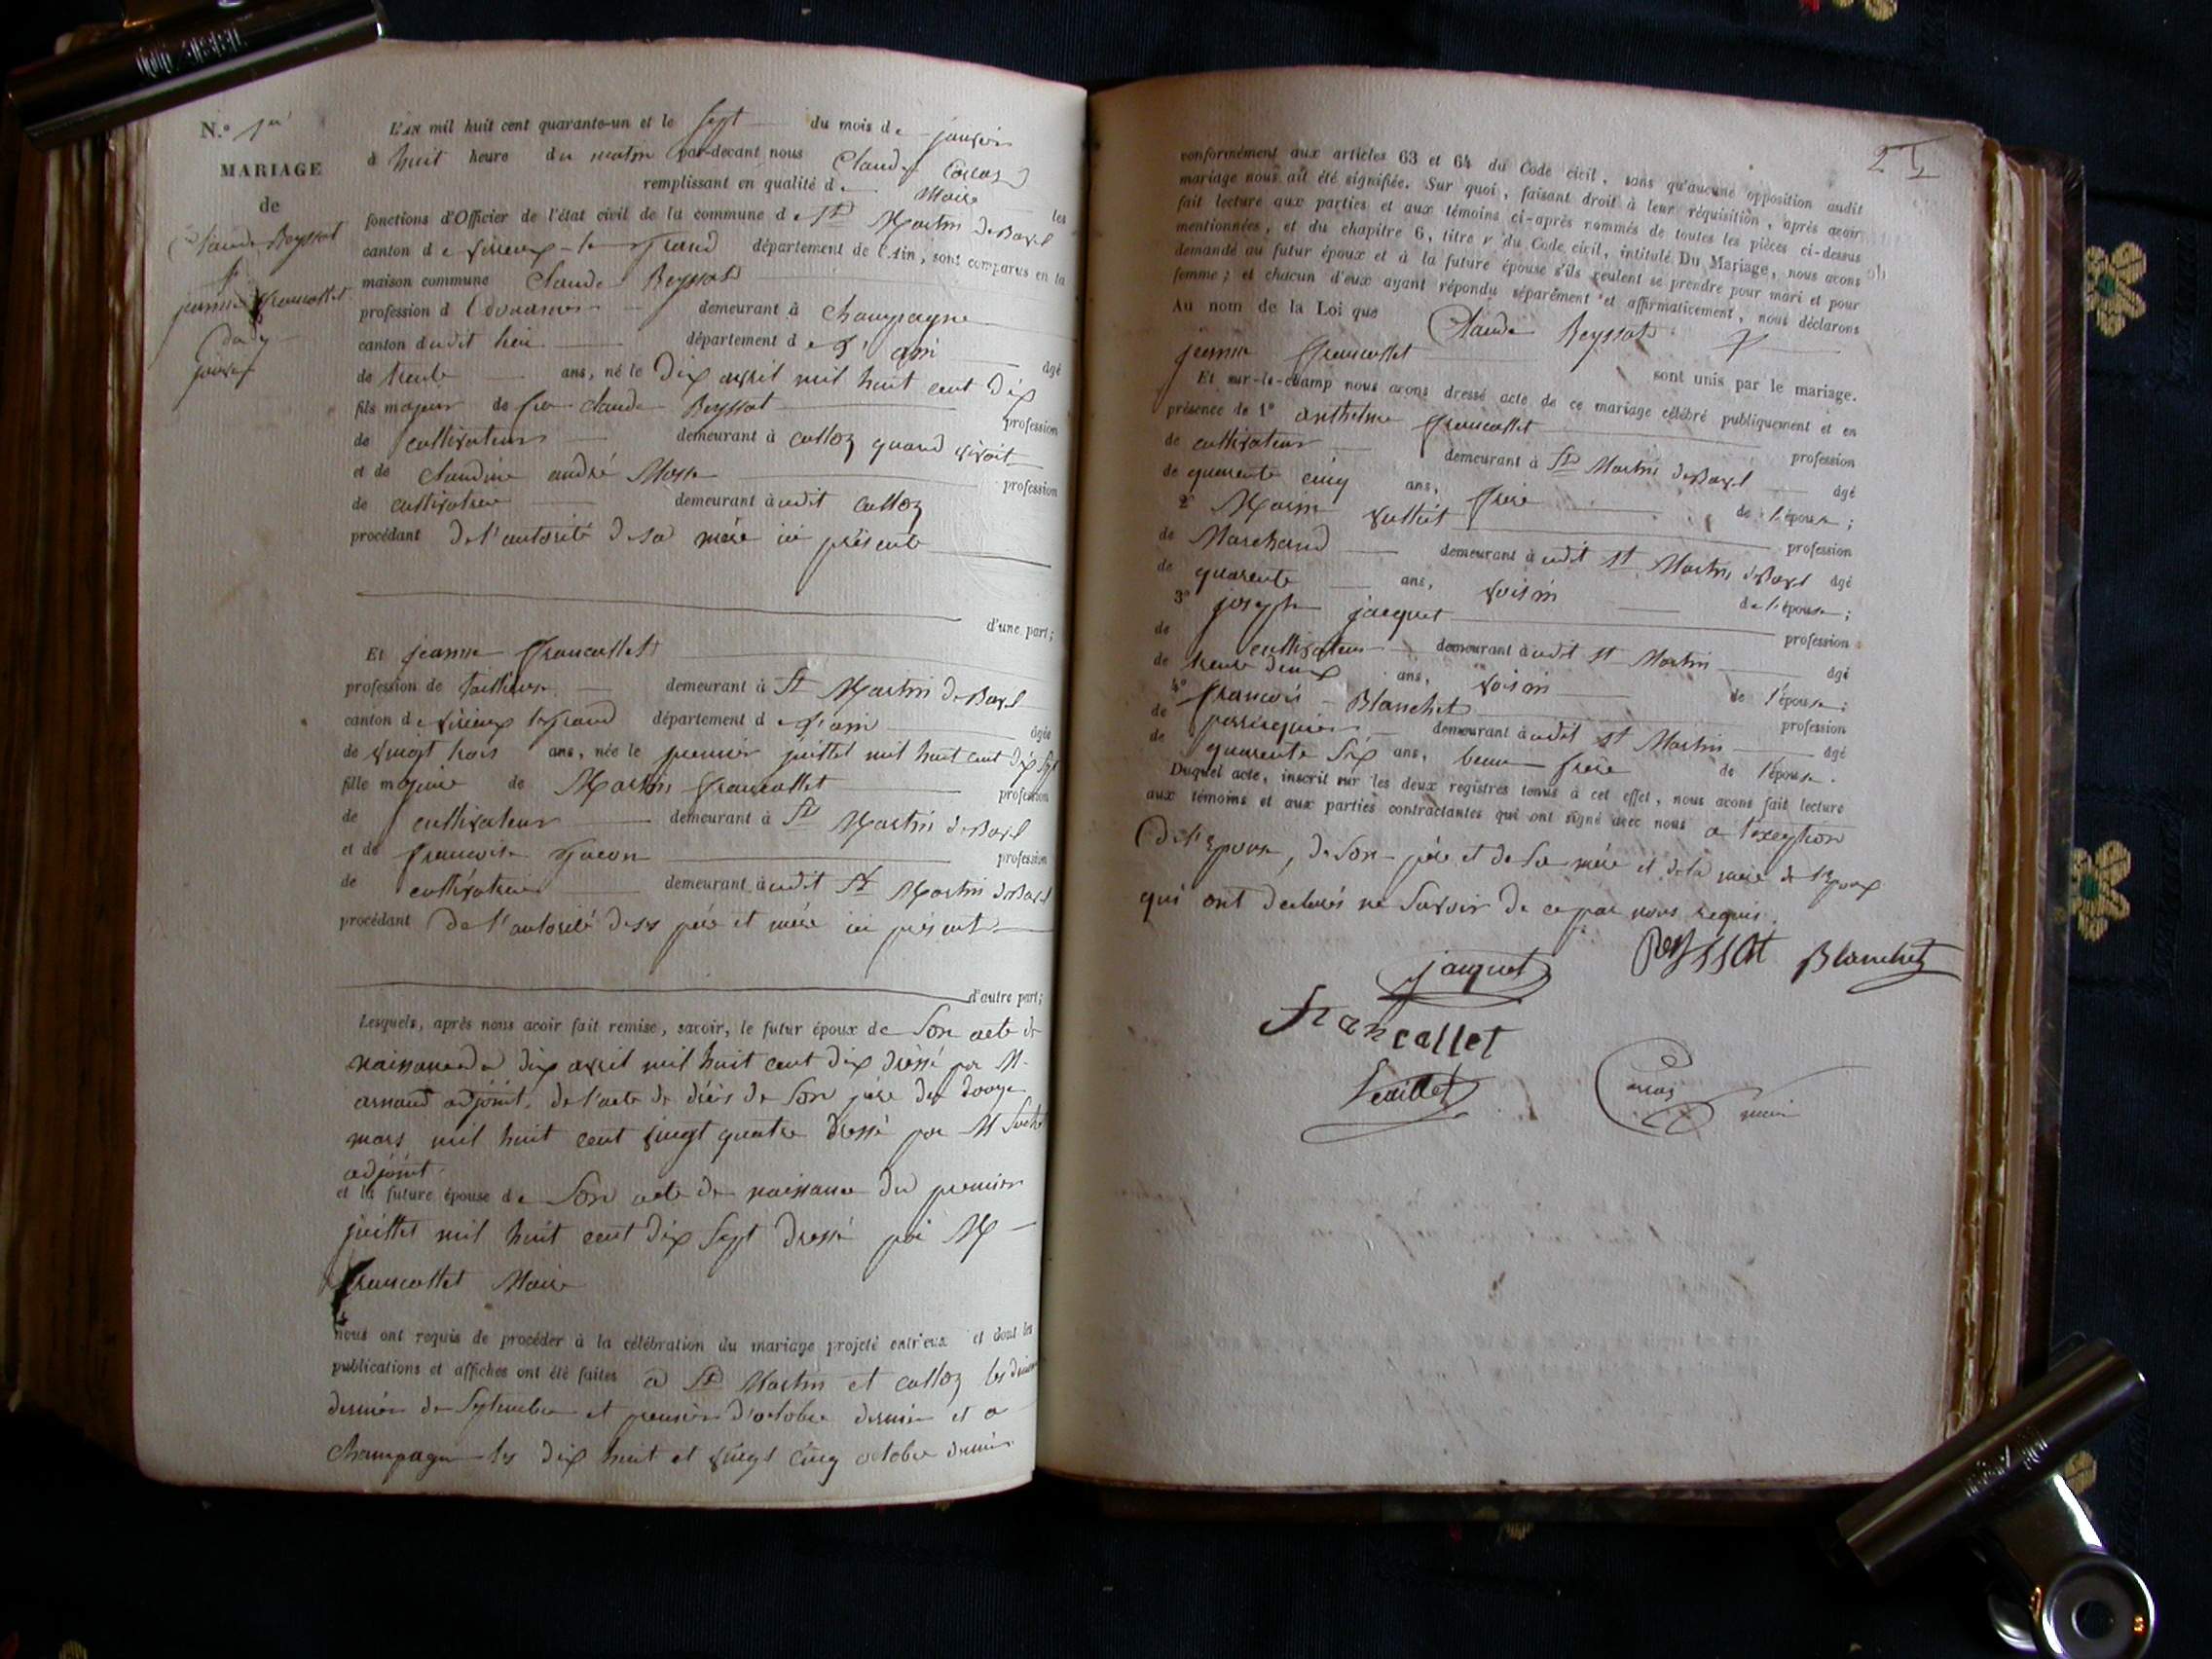 N.° 1er
MARIAGE
de
Claude Beyssat
&
jeanne francallet
du 7
janvier
L'AN mil huit cent quarante-un et le sept du mois de janvier
à huit heure du matin par-devant nous Claude
remplissant en qualité de Maire les
fonctions d'Officier de l'état civil de la commune de St Martin de Bavel
canton de virieux-le-grand département de l'Ain, sont comparus en la
maison commune Claude Beyssat
profession d demeurant à Champagne
canton dudit lieu département de l'ain âgé
de trente ans, né le dix avril mil huit cent dix
fils majeur de feu Claude Beyssat profession
de cultivateur demeurant à culloz quand vivait
et de claudine andré Masse profession
de cultivatrice demeurant à udit culloz
procédant de l'autorité de sa mère ici présente
d'une part;
Et jeanne francallet
profession de tailleuse demeurant à St Martin de Bavel
canton de virieux le grand département de l'ain âgée
de vingt trois ans, née le premier juillet mil huit cent dix sept
fille majeure de Martin francallet profession
de cultivateur demeurant à St Martin de Bavel
et de francoise profession
de cultivatrice demeurant à udit St Martin de Bavel
procédant de l'autorité de ses père et mère ici présents
d'autre part;
Lesquels, après nous avoir fait remise, savoir, le futur époux de son acte de
naissance du dix avril mil huit cent dix dréssé par M.
arnaud adjoint, de l'acte de décès de son père du douze
mars mil huit cent vingt quatre dressé par M
adjoint
et la future épouse de son acte de naissance du premier
juillet mil huit cent dix sept dressé par M
francallet Maire
nous ont requis de procéder à la célébration du mariage projeté entr'eux et dont les
publications et affiches ont été faites a St Martin et culloz les
dernier de septembre et premier d'octobre dernier et a
champagne les dix huit et vingt cinq octobre dernier
2
conformément aux articles 63 et 64 du Code civil, sans qu'aucune opposition audit
mariage nous ait été signifiée. Sur quoi, faisant droit à leur réquisition, après avoir
fait lecture aux parties et aux témoins ci-après nommés de toutes les pièces ci-dessus
mentionnées, et du chapitre 6, titre v du Code civil, intitulé Du Mariage, nous avons
demandé au futur époux et à la future épouse s'ils veulent se prendre pour mari et pour
femme; et chacun d'eux ayant répondu séparément et affirmativement, nous déclarons
Au nom de la Loi que Claude Beyssat &
jeanne francallet sont unis par le mariage.
Et sur-le-champ nous avons dressé acte de ce mariage célébré publiquement et en
présence de 1° anthelme francallet profession
de cultivateur demeurant à St Martin de Bavel âgé
de quarente cinq ans, frère de l'épouse;
2° vuillet profession
de Marchand demeurant à udit St Martin de Bavel âgé
de quarente ans, voisin de l'épouse;
3° joseph jacquet profession
de cultivateur demeurant à udit St Martin âgé
de trente deux ans, voisin de l'épouse;
4° francois Blanchet profession
de demeurant à udit St Martin âgé
de quarente six ans, beau frère de l'épouse.
Duquel acte, inscrit sur les deux registres tenus à cet effet, nous avons fait lecture
aux témoins et aux parties contractantes qui ont signé avec nous a l'exception
de l'Epouse, de son père et de sa mère et de la mère de l'Epoux
qui ont declarés ne savoir de ce par nous requis.
jacquet Beyssat Blanchet
francallet
vuillet maire